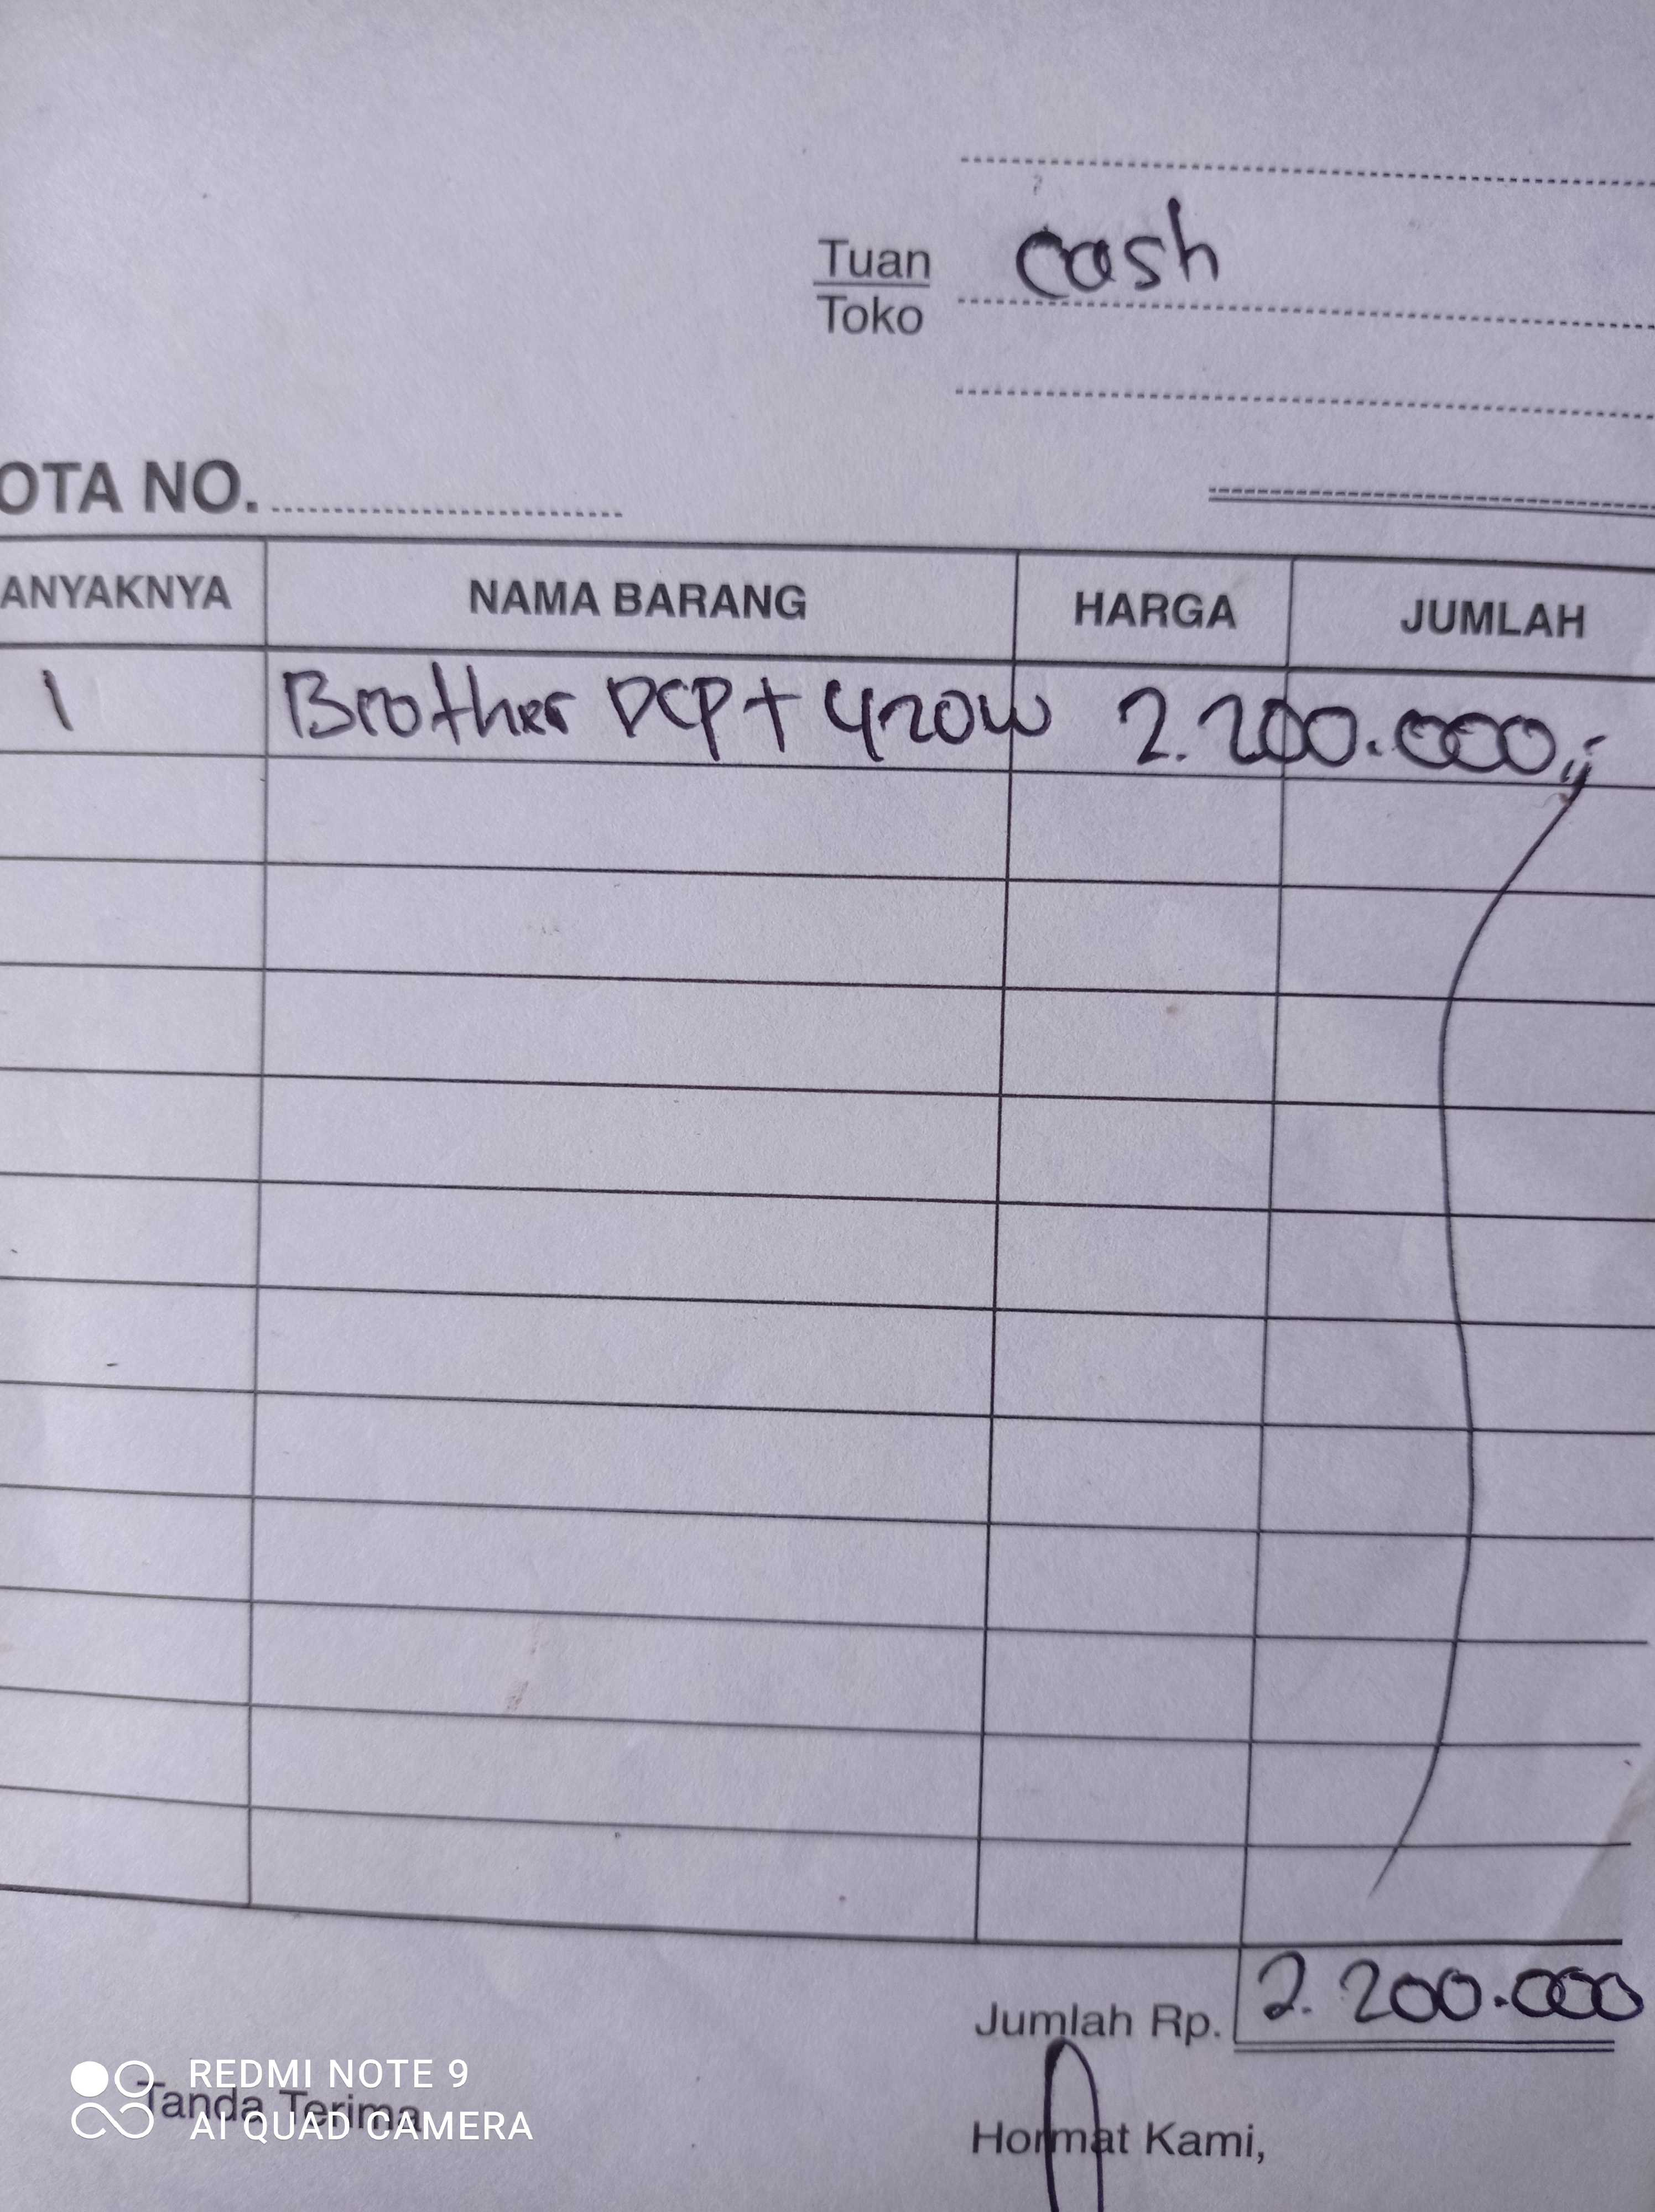 cash
Tuan
Toko
OTA NO.
ANYAKNYA NAMA BARANG HARGA JUMLAH
1 Brother DCP T 420W 2.200.000,-
Jumlah Rp. 2.200.000
Tanda Terima
Hormat Kami,
REDMI NOTE 9
AI QUAD CAMERA